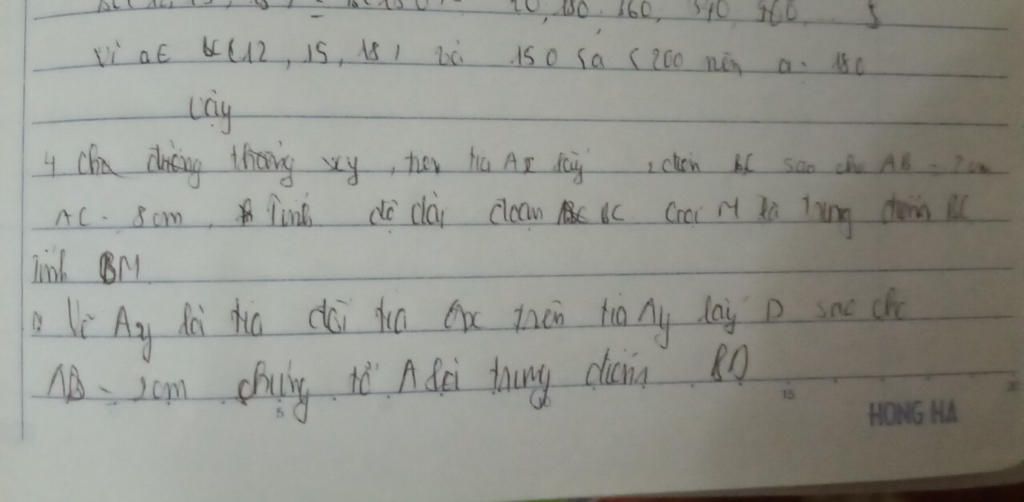 Vì a∈ BC(12, 15, 18) và 150 ≤ a ≤ 200 nên a = 180
Vậy
4 Cho đường thẳng xy, trên tia Ax lấy 2 điểm BC sao cho AB = 2cm
AC = 8cm, Tính độ dài đoạn BC Gọi M là trung điểm BC
Tính BM
Vì Ay là tia đối tia Ox trên tia Ay lấy D sao cho
AB = 2cm chứng tỏ A là trung điểm BD
5 15 20
HONG HA